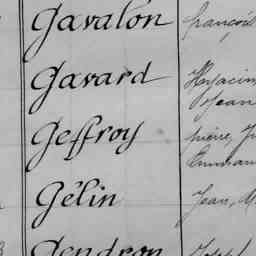 Gavalon françois
Gavard Hyacin
Jean
Geffroy pierre, J
Emman
Gélin Jean, M
Gendron Joseph